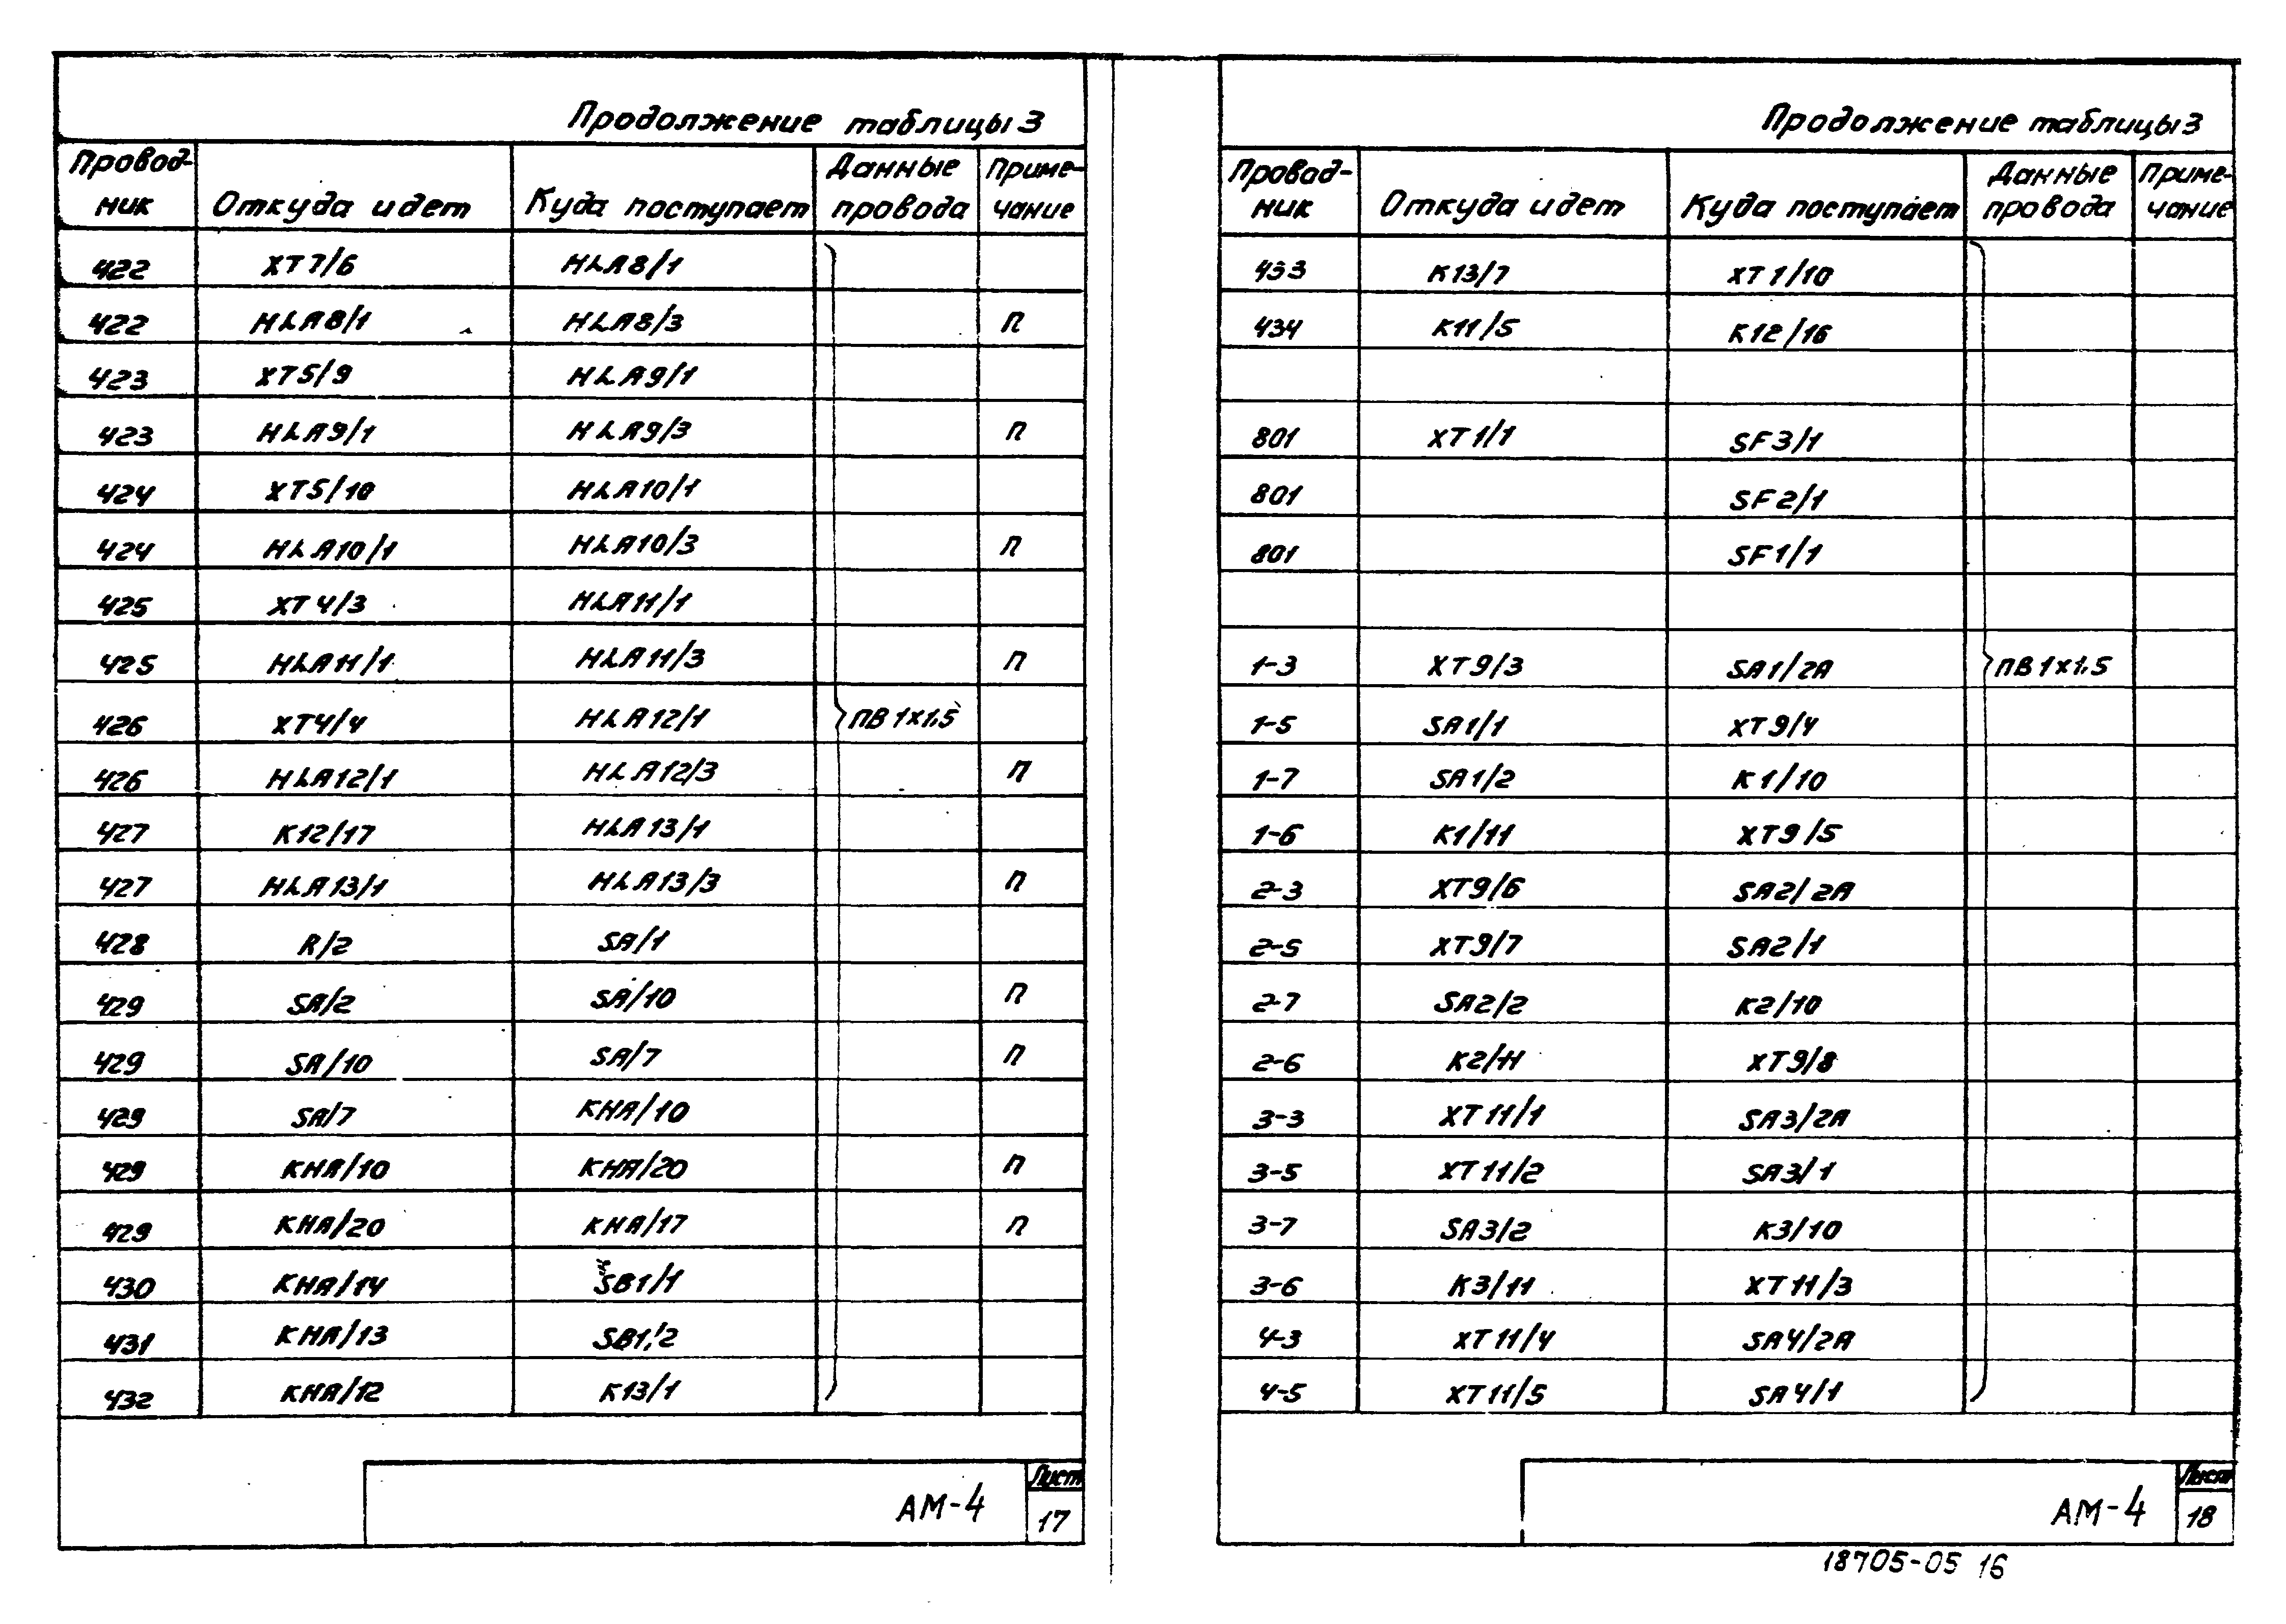 Продолжение таблицы 3
Провод-ник Откуда идет Куда поступает Данные провода Приме-чание
422 XT7/6 HLA8/1
422 HLA8/1 HLA8/3 П
423 XT5/9 HLA9/1
423 HLA9/1 HLA9/3 П
424 XT5/10 HLA10/1
424 HLA10/1 HLA10/3 П
425 XT4/3 HLA11/1
425 HLA11/1 HLA11/3 П
426 XT4/4 HLA12/1 ПВ 1x1,5
426 HLA12/1 HLA12/3 П
427 K12/17 HLA13/1
427 HLA13/1 HLA13/3 П
428 R/2 SA/1
429 SA/2 SA/10 П
429 SA/10 SA/7 П
429 SA/7 KHA/10
429 KHA/10 KHA/20 П
429 KHA/20 KHA/17 П
430 KHA/14 SB1/1
431 KHA/13 SB1/2
432 KHA/12 K13/1
АМ-4
Лист
17
Продолжение таблицы 3
Провод-ник Откуда идет Куда поступает Данные провода Приме-чание
433 K13/7 XT1/10
434 K11/5 K12/16
801 XT1/1 SF3/1
801 SF2/1
801 SF1/1
1-3 XT9/3 SA1/2A ПВ 1x1,5
1-5 SA1/1 XT9/4
1-7 SA1/2 K1/10
1-6 K1/11 XT9/5
2-3 XT9/6 SA2/2A
2-5 XT9/7 SA2/1
2-7 SA2/2 K2/10
2-6 K2/11 XT9/8
3-3 XT11/1 SA3/2A
3-5 XT11/2 SA3/1
3-7 SA3/2 K3/10
3-6 K3/11 XT11/3
4-3 XT11/4 SA4/2A
4-5 XT11/5 SA4/1
АМ-4
Лист
18
18705-05 16